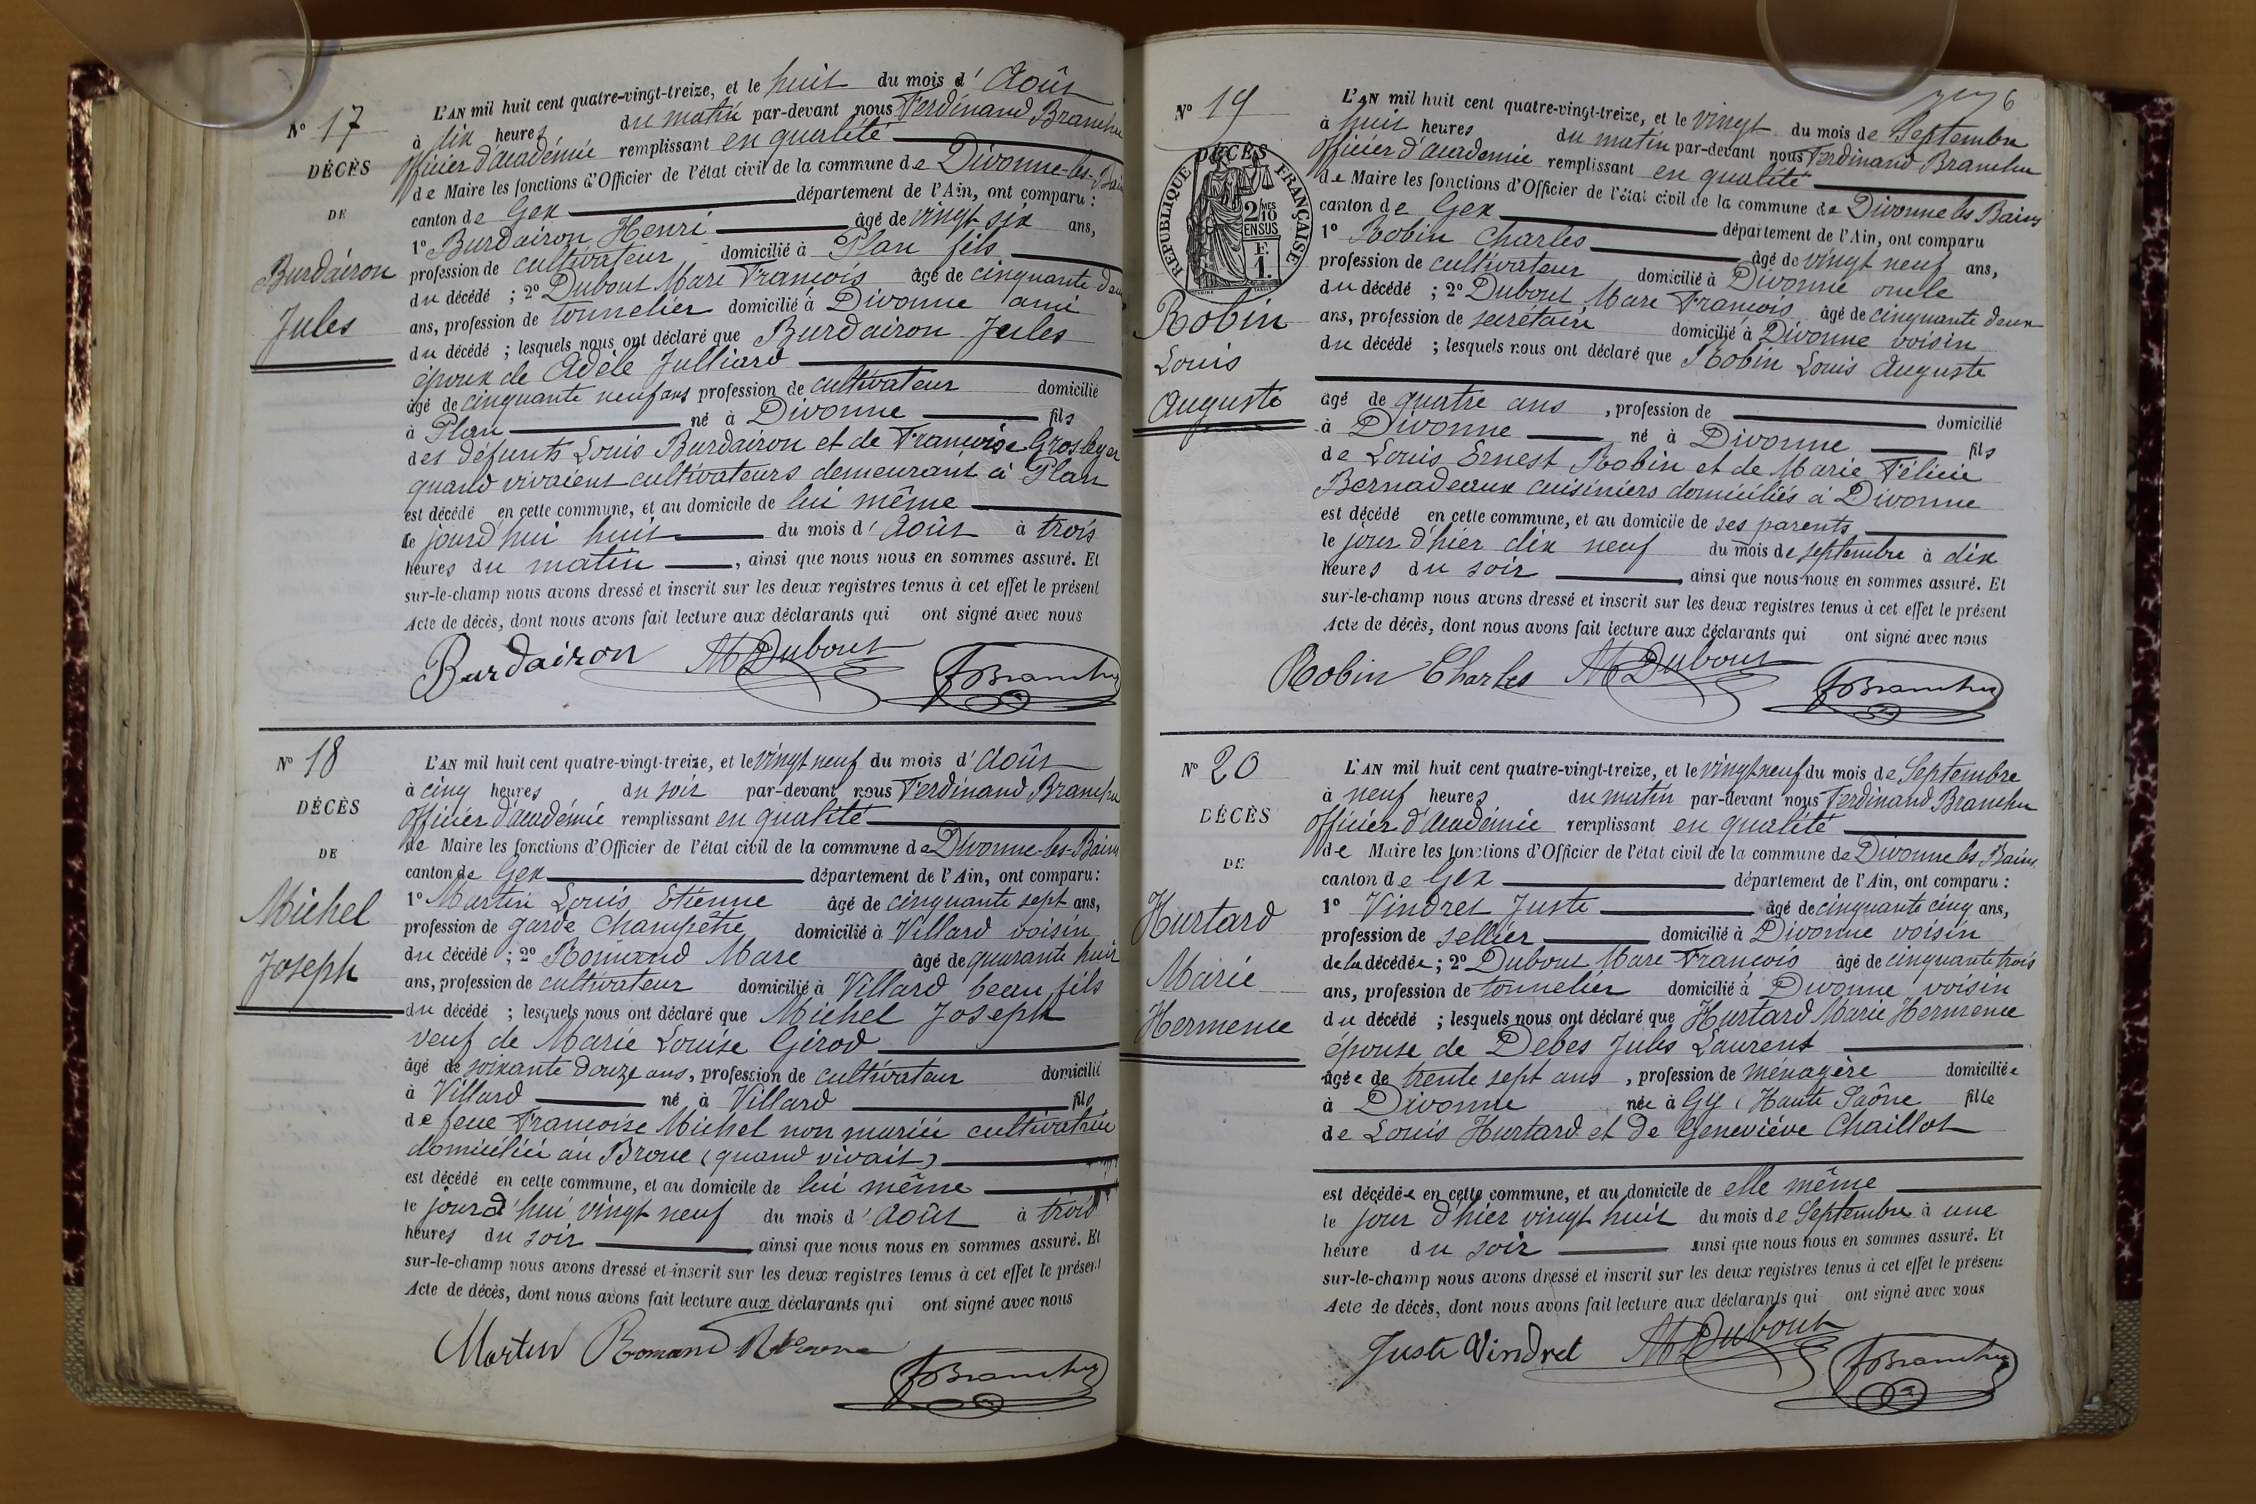 N° 17
DÉCÈS
DE
Burdairon
Jules
L'AN mil huit cent quatre-vingt-treize, et le huit du mois d' Août
à dix heures du matin par-devant nous Ferdinand Branchu
officier d'académie remplissant en qualité
de Maire les fonctions d'Officier de l'état civil de la commune de Divonne-les-Bains
canton de Gex département de l'Ain, ont comparu :
1° Burdairon Henri âgé de vingt six ans,
profession de cultivateur domicilié à Plan fils
du décédé ; 2° Dubout Marc François âgé de cinquante deux
ans, profession de tonnelier domicilié à Divonne ami
du décédé ; lesquels nous ont déclaré que Burdairon Jules
époux de Adèle Julliard
âgé de cinquante neuf ans profession de cultivateur domicilié
à Plan né à Divonne fils
des défunts Louis Burdairon et de Françoise Grosleyer
quand vivaient cultivateurs demeurant à Plan
est décédé en cette commune, et au domicile de lui même
le jourd'hui huit du mois d' Août à trois
heures du matin , ainsi que nous nous en sommes assuré. Et
sur-le-champ nous avons dressé et inscrit sur les deux registres tenus à cet effet le présent
Acte de décès, dont nous avons fait lecture aux déclarants qui ont signé avec nous
Burdairon MDubout FBranchu
N° 18
DÉCÈS
DE
Michel
Joseph
L'AN mil huit cent quatre-vingt-treize, et le vingt neuf du mois d' Août
à cinq heures du soir par-devant nous Ferdinand Branchu
officier d'académie remplissant en qualité
de Maire les fonctions d'Officier de l'état civil de la commune de Divonne-les-Bains
canton de Gex département de l'Ain, ont comparu :
1° Martin Louis Etienne âgé de cinquante sept ans,
profession de garde champêtre domicilié à Villard voisin
du décédé ; 2° Romand Marc âgé de quarante huit
ans, profession de cultivateur domicilié à Villard beau fils
du décédé ; lesquels nous ont déclaré que Michel Joseph
veuf de Marie Louise Girod
âgé de soixante douze ans, profession de cultivateur domicilié
à Villard né à Villard fils
de feue Françoise Michel non mariée cultivatrice
domiciliée au Broue (quand vivait)
est décédé en cette commune, et au domicile de lui même
le jourd'hui vingt neuf du mois d' Août à trois
heures du soir ainsi que nous nous en sommes assuré. Et
sur-le-champ nous avons dressé et inscrit sur les deux registres tenus à cet effet le présent
Acte de décès, dont nous avons fait lecture aux déclarants qui ont signé avec nous
Martin Romand FBranchu
6
N° 19
DÉCÈS
RÉPUBLIQUE FRANÇAISE
2 MES
10
EN SUS
F.
1.
Robin
Louis
Auguste
L'AN mil huit cent quatre-vingt-treize, et le vingt du mois de Septembre
à huit heures du matin par-devant nous Ferdinand Branchu
officier d'académie remplissant en qualité
de Maire les fonctions d'Officier de l'état civil de la commune de Divonne les Bains
canton de Gex département de l'Ain, ont comparu
1° Robin Charles âgé de vingt neuf ans,
profession de cultivateur domicilié à Divonne oncle
du décédé ; 2° Dubout Marc François âgé de cinquante deux
ans, profession de secrétaire domicilié à Divonne voisin
du décédé ; lesquels nous ont déclaré que Robin Louis Auguste
âgé de quatre ans , profession de domicilié
à Divonne né à Divonne fils
de Louis Ernest Robin et de Marie Félicie
Bernadeaux cuisiniers domiciliés à Divonne
est décédé en cette commune, et au domicile de ses parents
le jour d'hier dix neuf du mois de septembre à dix
heures du soir , ainsi que nous nous en sommes assuré. Et
sur-le-champ nous avons dressé et inscrit sur les deux registres tenus à cet effet le présent
Acte de décès, dont nous avons fait lecture aux déclarants qui ont signé avec nous
Robin Charles MDubout FBranchu
N° 20
DÉCÈS
DE
Hurtard
Marie
Hermence
L'AN mil huit cent quatre-vingt-treize, et le vingt neuf du mois de Septembre
à neuf heures du matin par-devant nous Ferdinand Branchu
officier d'Académie remplissant en qualité
de Maire les fonctions d'Officier de l'état civil de la commune de Divonne les Bains
canton de Gex département de l'Ain, ont comparu :
1° Vindret Juste âgé de cinquante cinq ans,
profession de sellier domicilié à Divonne voisin
de la décédée ; 2° Dubout Marc François âgé de cinquante trois
ans, profession de tonnelier domicilié à Divonne voisin
du décédé ; lesquels nous ont déclaré que Hurtard Marie Hermence
épouse de Debes Jules Laurent
âgée de trente sept ans , profession de ménagère domiciliée
à Divonne née à Gy (Haute Saône fille
de Louis Hurtard et de Geneviève Chaillot
est décédée en cette commune, et au domicile de elle même
le jour d'hier vingt huit du mois de Septembre à une
heure du soir ainsi que nous nous en sommes assuré. Et
sur-le-champ nous avons dressé et inscrit sur les deux registres tenus à cet effet le présent
Acte de décès, dont nous avons fait lecture aux déclarants qui ont signé avec nous
Juste Vindret MDubout FBranchu